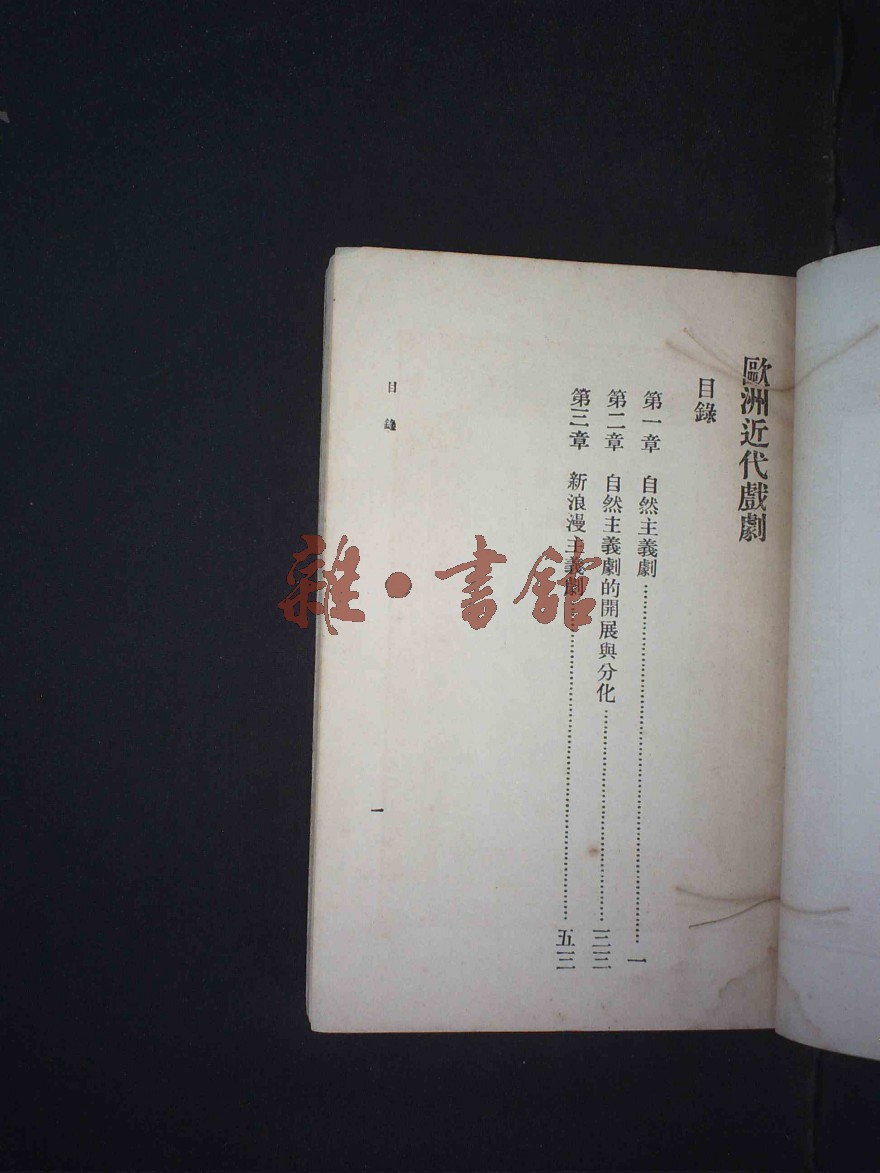 歐洲近代戲劇
目錄
第一章　自然主義劇……一
第二章　自然主義劇的開展與分化……三三
第三章　新浪漫主義劇……五三
目錄
一
雜·書館